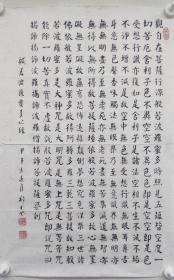 觀自在菩薩行深般若波羅蜜多時照見五蘊皆空度一
切苦厄舍利子色不異空空不異色色即是空空即是色
受想行識亦復如是舍利子是諸法空相不生不滅不垢
不淨不增不減是故空中無色無受想行識無眼耳鼻舌
身意無色聲香味觸法無眼界乃至無意識界無無明亦
無無明盡乃至無老死亦無老死盡無苦集滅道無智亦
無得以無所得故菩提薩埵依般若波羅蜜多故心無罣
礙無罣礙故無有恐怖遠離顛倒夢想究竟涅槃三世諸
佛依般若波羅蜜多故得阿耨多羅三藐三菩提故知般
若波羅蜜多是大神咒是大明咒是無上咒是無等等咒
能除一切苦真實不虛故說般若波羅蜜多咒即說咒曰
揭諦揭諦波羅揭諦波羅僧揭諦菩提薩婆訶
般若波羅蜜多心經
甲午